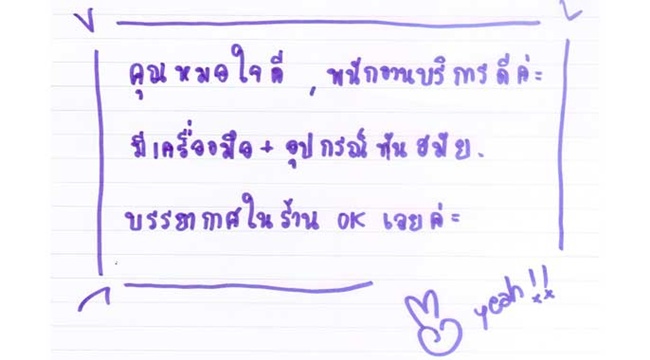 คุณหมอใจดี , พนักงานบริการดีค่ะ
มีเครื่องมือ + อุปกรณ์ทันสมัย.
บรรยากาศในร้าน OK เลยค่ะ
yeah!!